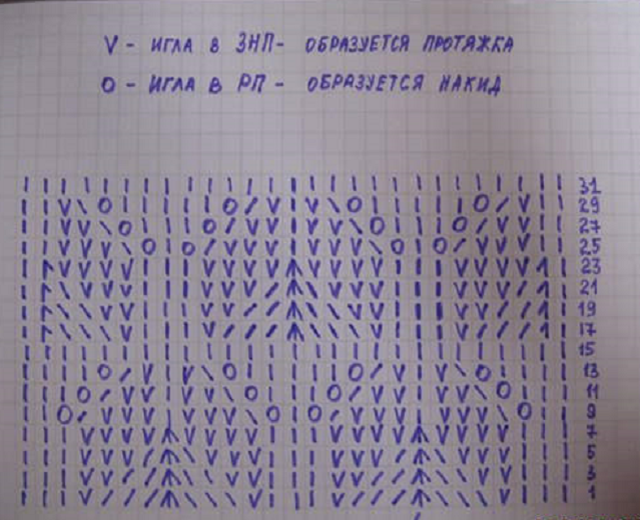 V - ИГЛА В ЗНП - ОБРАЗУЕТСЯ ПРОТЯЖКА
O - ИГЛА В РП - ОБРАЗУЕТСЯ НАКИД
31
29
27
25
23
21
19
17
15
13
11
9
7
5
3
1